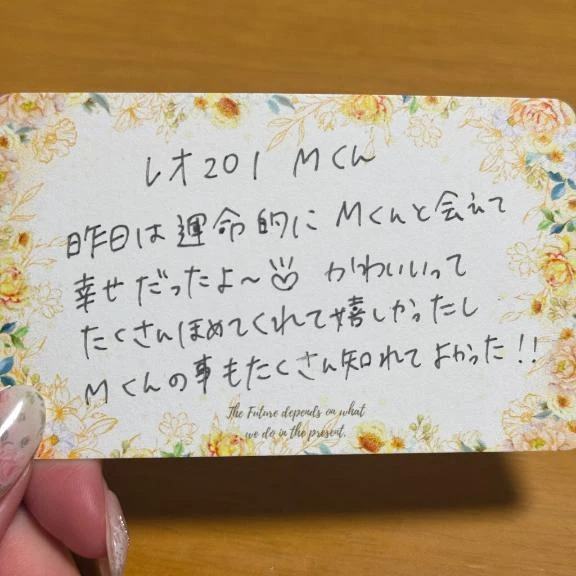 レオ201 Mくん
昨日は運命的にMくんと会えて
幸せだったよ〜 かわいいって
たくさんほめてくれて嬉しかったし
Mくんの事もたくさん知れてよかった!!
The Future depends on what
we do in the present.